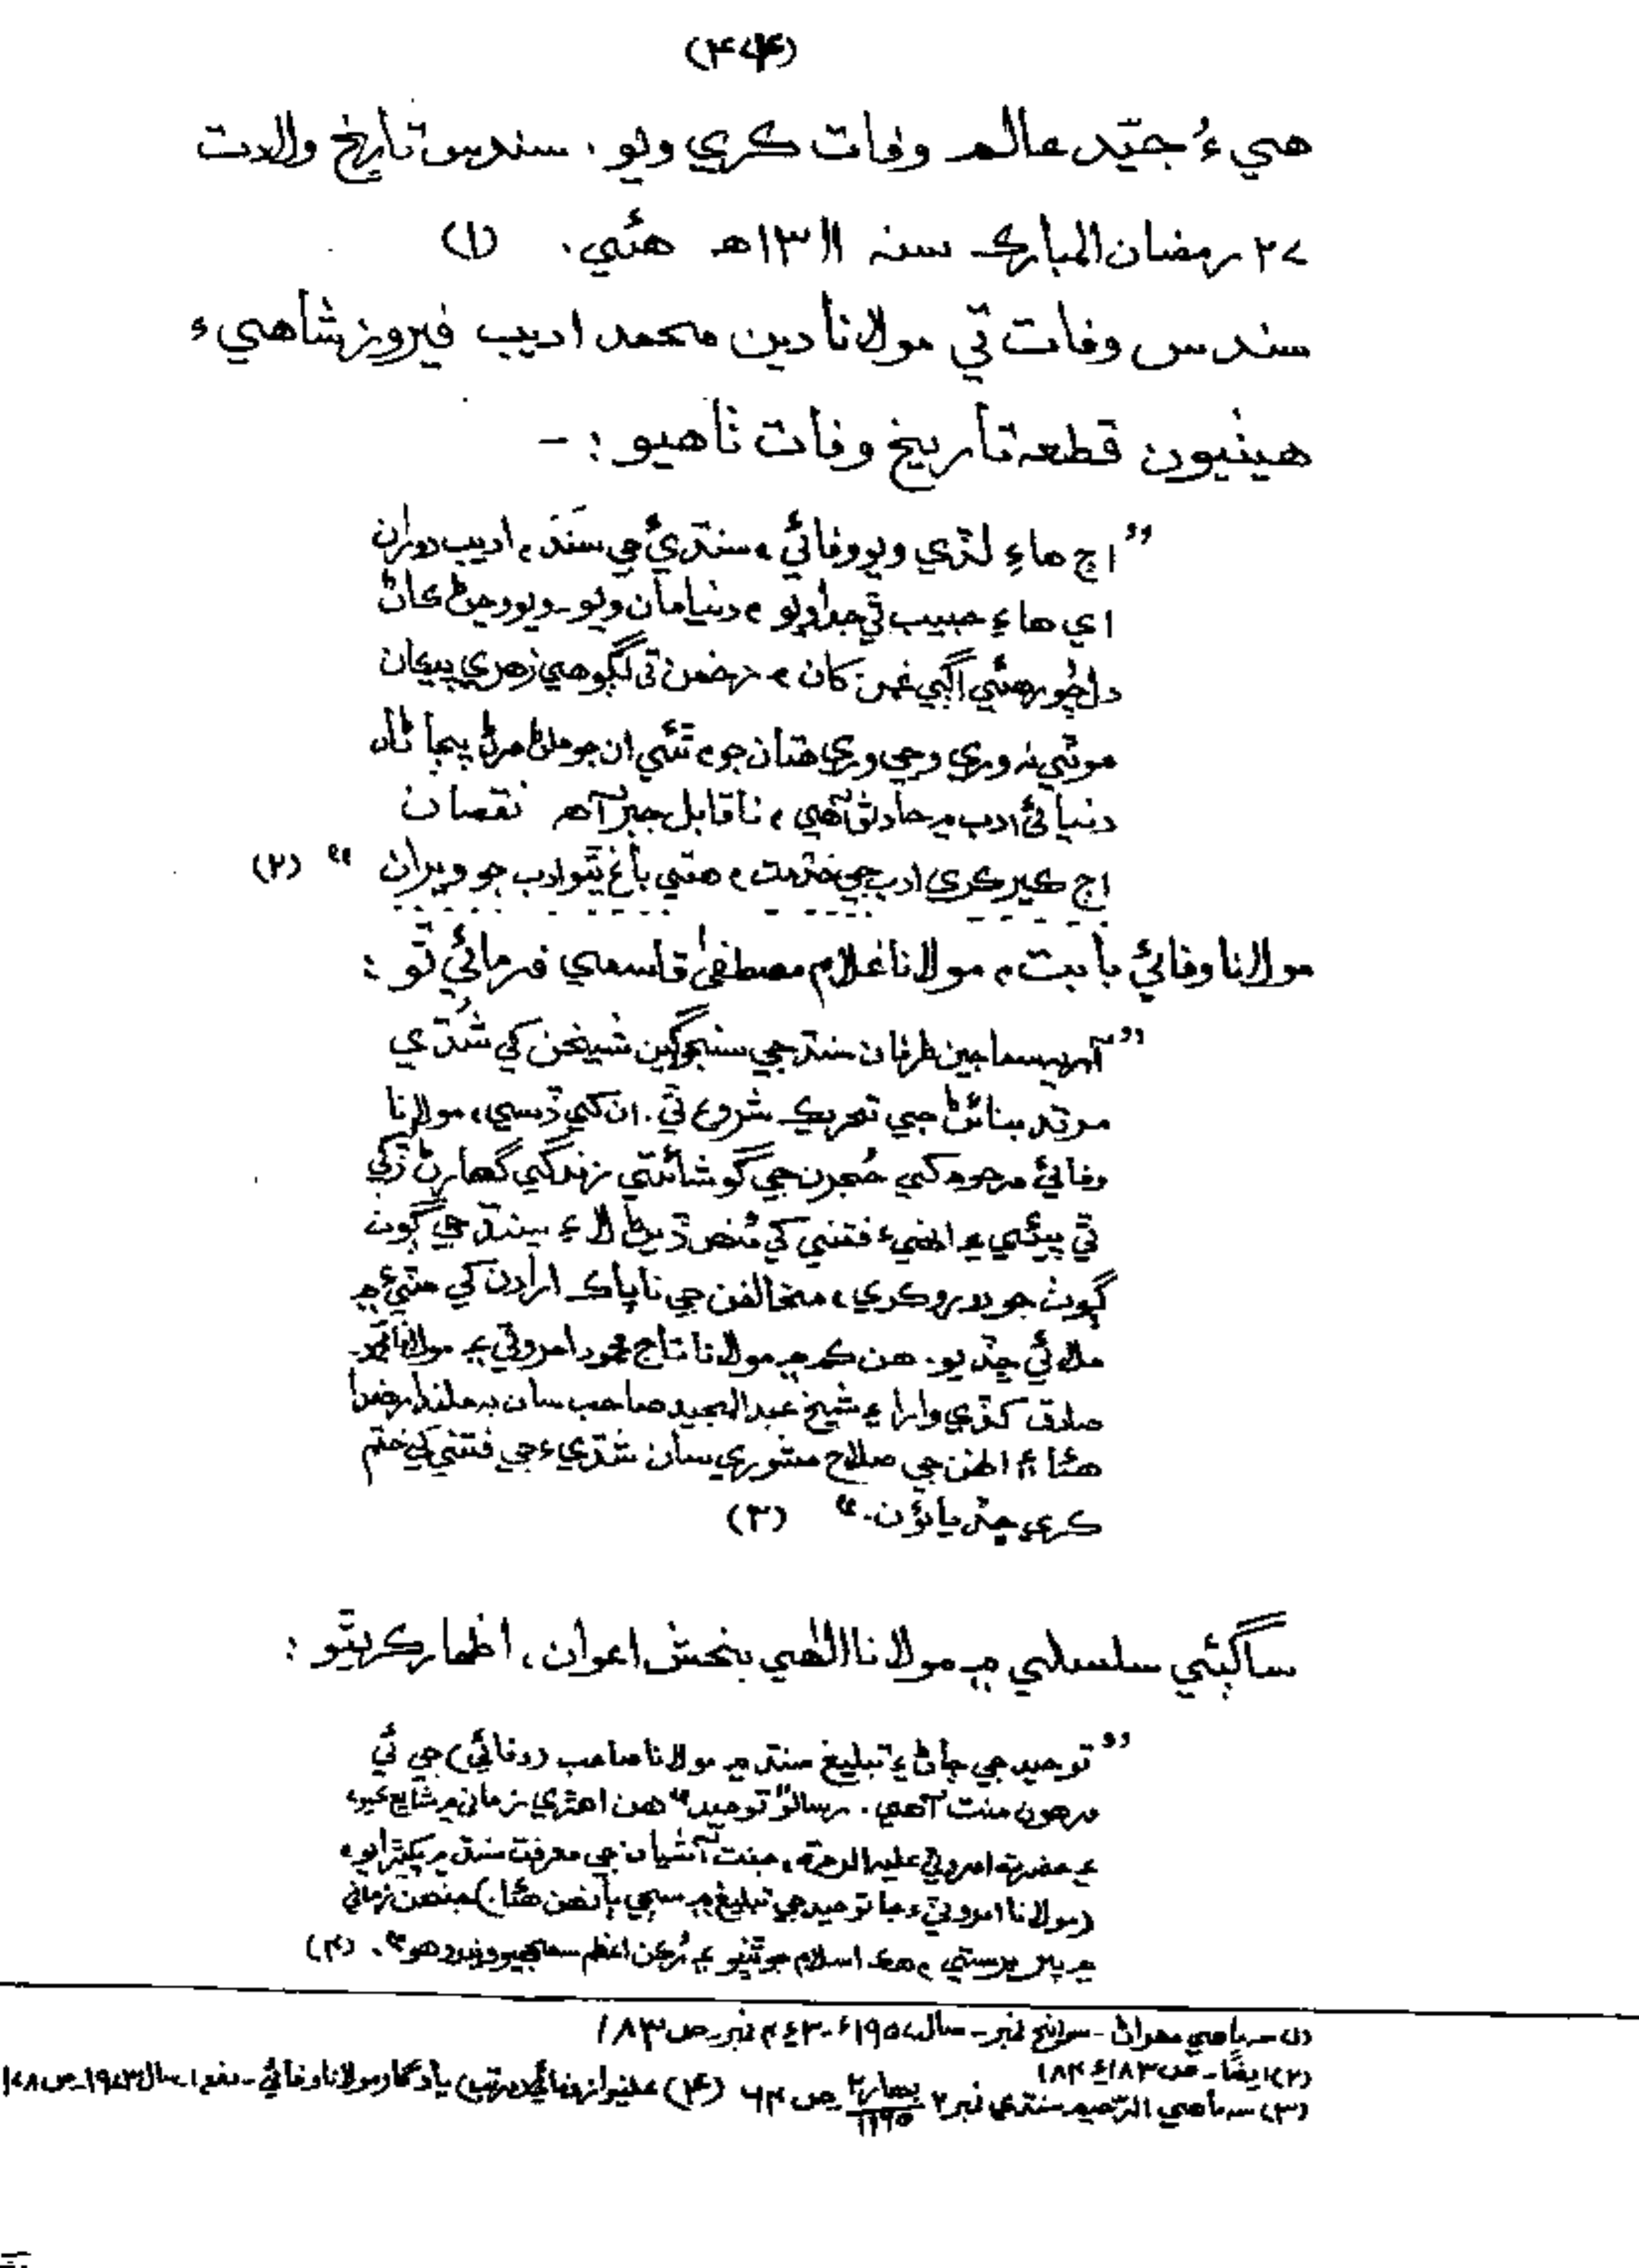 هيءُ جيّد عالم وفات ڪري ويو، سندس تاريخ ولادت
٢٧ رمضان المبارڪ سنہ ١٣١١ھ هئي. (١)
سندس وفات تي مولانا دين محمد اديب فيروزشاهيء
هيٺيون قطعہ تاريخ وفات ٺاهيو :-
”اڄ هاءِ لڏي ويو وفائي، سنڌيءَ جي سَنَدَ، اديب دوران
اي هاءِ حبيب ٿي جدا ويو، دنيا مان ويو - ويو وڃڻ کان
دل چُور هئي اڳي غمن کان، زخمن تي لڳو هي زهري پيڪان
موٽي نہ وري وڃي وري هتان جو، تئي ان جو ملڻ مرڻ پڄاڻان
دنيائي ادب ۾ حادثو آهي، ناقابل جبر آهہ نقصان
اڄ ڪير ڪري ادب جي خدمت، هتي باغ ٿيو ادب جو ويران“ (٢)
مولانا وفائيءَ بابت، مولانا غلام مصطفيٰ قاسمي فرمائي ٿو :
”آريہ سماجين طرفان سنڌ جي سنجوڳين شيخن کي شُڌي
مرتد بنائڻ جي تحريڪ شروع ٿي. ان کي ڏسي، مولانا
وفائيءَ مرحوم کي حُجرن جي گوشائتي زندگي گهارڻ ترڪ
ٿي پيئي ۽ انهيءَ فتني کي مُنهن ڏيڻ لاءِ سنڌ جي ڳوٺ
ڳوٺ جو دورو ڪري، مخالفن جي ناپاڪ ارادن کي مٽيءَ ۾
ملائي ڇڏيو. هن ڪم ۾ مولانا تاج محمود امروٽي ۽ مولانا محمد
صادق کڏي وارا ۽ شيخ عبدالمجيد صاحب سان بہ ملندا رهندا
هئا ۽ انهن جي صلاح مشوري سان شُڌيءَ جي فتني کي ختم
ڪري ڇڏيائون.“ (٣)
ساڳئي سلسلي ۾ مولانا الاهي بخش اعوان، اظهار ڪري ٿو :
”توحيد جي ڄاڻ ۽ تبليغ سنڌ ۾ مولانا صاحب (وفائي) جي ئي
مرهون منت آهي. رسالو ”توحيد“ هن اهڙي زماني ۾ شايع ڪيو،
۽ حضرت امروٽي عليہ الرحمة، جنت آشيان جي معرفت سنڌ ۾ پکيڙايو،
(مولانا امروٽيءَ جا توحيد جي تبليغ ۾ سڄي ٻانهن هئا.) جنهن زماني
۾ پير پرستي، اسلام جو ٿنڀو ۽ رُڪن اعظم سمجهيو ويندو هو“. (٤)
(١) سہ ماهي مهراڻ - سوانح نمبر - سال ١٩٥٧ع - ٣ ۽ ٤ نمبر - ص ١٨٣
(٢) ايضاً - ص ١٨٣ ۽ ١٨٤
(٣) سہ ماهي الرحيم سنڌي نمبر ٢ بهار ص ٦٤ (٤) يادگار مولانا وفائي - سال ١٩٨٣ - ص ١٤٨